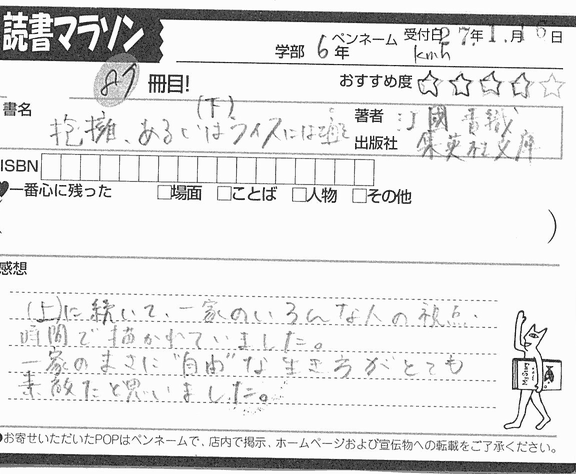 読書マラソン
学部 6年 ペンネーム kmh 受付日 27年 1.月 16日
87 冊目! おすすめ度 ☆☆☆☆☆
書名 抱擁、あるいはライスには塩を (下)
著者 江國香織
出版社 集英社文庫
ISBN
♥一番心に残った □場面 □ことば □人物 □その他
)
感想
(上)に続いて、一家のいろんな人の視点、
時間で描かれていました。
一家のまさに"自由"な生き方がとても
素敵だと思いました。
●お寄せいただいたPOPはペンネームで、店内で掲示、ホームページおよび宣伝物への転載をご了承ください。